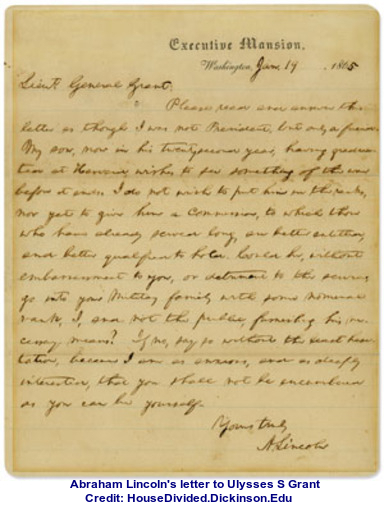 Executive Mansion,
Washington, Jan. 19, 1865
Lieut. General Grant:
Please read and answer this
letter as though I was not President, but only a friend.
My son, now in his twenty second year, having gradua-
ted at Harvard, wishes to see something of the war
before it ends. I do not wish to put him in the ranks,
nor yet to give him a commission, to which those
who have already served long, are better entitled,
and better qualified to hold. Could he, without
embarrassment to you, or detriment to the service,
go into your Military family with some nominal
rank, I, and not the public, furnishing his ne-
cessary means? If no, say so without the least hesi-
tation, because I am as anxious, and as deeply
interested, that you shall not be encumbered
as you can be yourself.
Yours truly
A. Lincoln
Abraham Lincoln's letter to Ulysses S Grant
Credit: HouseDivided.Dickinson.Edu